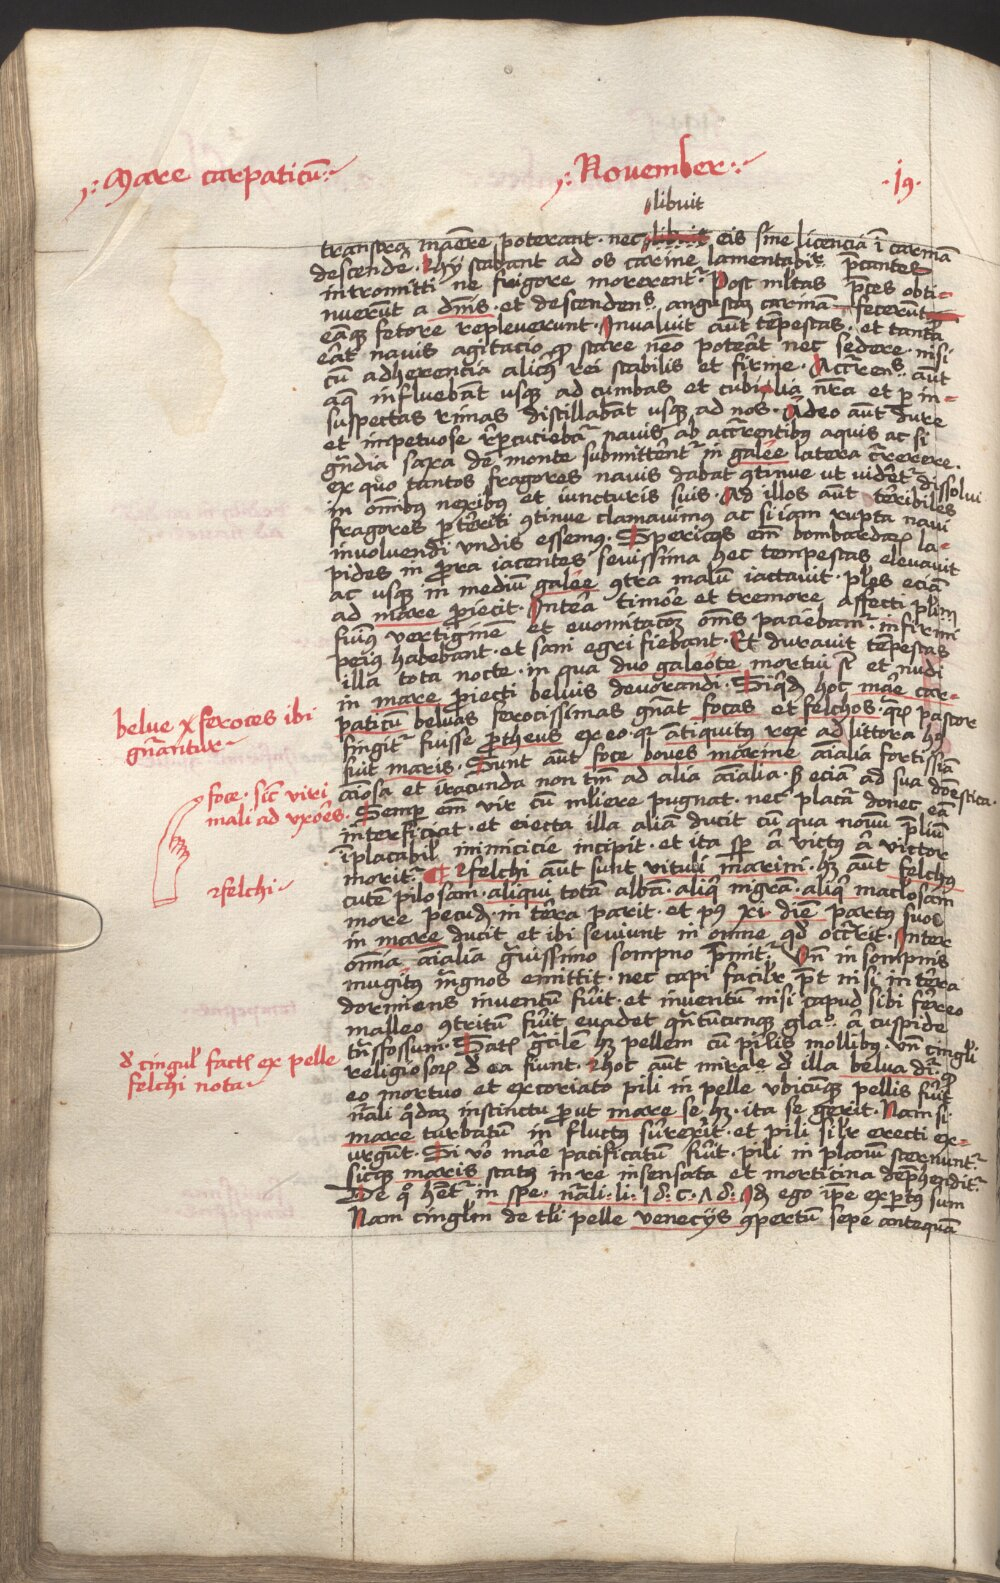 Mare carpaticū
November
·19·
libuit
transtra manere poterant · nec libuit eis sine licencia ī carinā
descendē · Hÿ stabant ad os carine lamentabilr p̄cantes
intromitti ne frigore morerent᷑ · Post ml̄tas p̄ces obti-
nuerūt a dn̄is · et descendens angustā carinā fecerūt
eamq; fetore repleverunt · Invaluit aūt tēpestas · et tanta
erāt navis agitacio qͦ stare neo poterāt nec sedere · nisi
cū adherencia alicuiꝰ rei stabilis et firme · Accr̄rens aūt
aq̄ influebāt usq; ad cumbas et cubilia nr̄a et p in-
suspectas rimas distillabāt usq; ad nos · Adeo aūt dure
et impetuose r̄percuciebat᷑ navis ab accr̄rentibꝰ aquis ac si
gn̄dia saxa de monte submitterent᷑ in galee latera cr̄rerere ·
ex quo tantos fragores navis dabat ꝯtinue ut videret᷑ dissolvi
in om̄ibꝰ nexibꝰ et iuncturis suis · Ad illos aūt terribiles
fragores p̄territi ꝯtinue clamavimꝰ ac si iam rupta navi
involvendi undis essemꝰ · Spericꝰs em̄ bombardaꝝ la-
pides in prora iacentes sevissima hec tempestas elevavit
ac usq; in mediū galee ꝯtra malū iactavit · pl̄es eciā
ad mare proiecit · Interā timore et tremore affecti plim
fuimꝰ vertiginē et evomitacōꝫ om̄s paciebamr · infirmi
peiꝰ habebant · et sani egri fiebant · Et duravit tēpestas
illa tota nocte · in qua duo galeote mortui sr̄ et nudi
in mare proiecti beluis devorandi · Siq̄dē hoc mare car-
paticū beluas ferocissimas gn̄at focas et felchos · q̄ꝝ pastor
fingit᷑ fuisse protheus ex eo · qꝛ ātiquitus rex ad littora hꝰ
fuit maris · Sunt aūt foce boves marine aīalia fortissīa
aīosa et iracunda non tm̄ ad alia aīalia · sꝫ eciā ad sua domestica ·
Semp em̄ vir cū ml̄iere pugnat · nec placat᷑ donec eā
interficiat · et eiecta illa aliā ducit cū qua novū p̄liū
īplacabil inimicicie incipit · et ita sp̄ ā victꝰ ā victor
morit᷑ · ¶ Felchi aūt sunt vituli marini · hꝫ aūt felchꝰ
cutē pilosam · aliqui totā albā · aliq̄ nigrā · aliq̄ maclosam
more pecudꝫ in terra parit · et pꝰ xi · diē partꝰ suos
in mare ducit et ibi seviunt in omne qd̄ occr̄rit · Inter
omnia aīalia gr̄vissimo sompno p̄mit᷑ · Vn̄ in sompnis
mugitꝰ mgn̄os emittit · nec capi facilr̄ pt̄ nisi in terra
dormiens inventū fuit · et inventum nisi capud sibi ferreo
malleo ꝯtritum fuit evadet qn̄tumcunq; gla · ā cuspide
trn̄sfossum · Satꝫ gr̄cile hꝫ pellem cū pilis mollibꝰ · vn̄ cingl̄i
religiosoꝝ de ea fiunt · Hoc aūt mirale de illa belua dr̄ · qͦ
eo mortuo et excoriato pili in pelle ubicunq; pellis fuit
nr̄ali qͦdā instinctu prout mare se hꝫ · ita se gerit · Nam si
mare turbatū in fluctꝰ surrexit · et pili silr̄ erecti ex-
urgūt · Si vͦo mare pacificatū fuit · pili in planum sternunt᷑
sicq; maris statꝰ in re insensata et morticina dep̄hendit᷑ ·
De qͦ hēt᷑ in spe · nr̄ali · li · 18 · c · 78 · Id ego ip̄e expertꝰ sum
Nam cingl̄m de tl̄i pelle venecijs ꝯpertū sepe anteqͣꝫ
belue x feroces ibi
gn̄antur
foce · sic viri
mali ad vxōres ·
felchi
de cingul factꝭ ex pelle
felchi nota